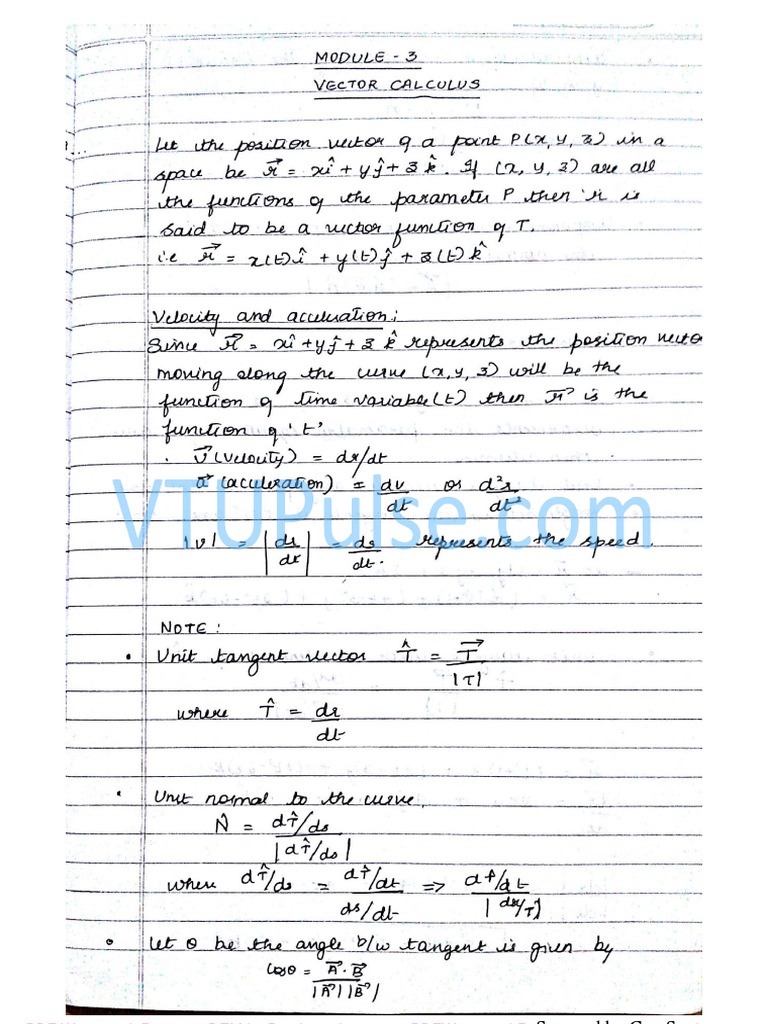 MODULE - 3
VECTOR CALCULUS
Let the position vector of a point P(x, y, z) in a
space be r⃗ = xî + yĵ + zk̂. If (x, y, z) are all
the functions of the parameter P then 'r is
said to be a vector function of T.
i.e r⃗ = x(t)î + y(t)ĵ + z(t)k̂
Velocity and acceleration:
Since r⃗ = xî + yĵ + zk̂ represents the position vector
moving along the curve (x, y, z) will be the
function of time variable(t) then r⃗ is the
function of 't'
. v⃗ (velocity) = dr/dt
a⃗ (acceleration) = dv/dt or d²r/dt²
VTUPulse.com
|v| = |dr/dt| = ds/dt. represents the speed.
NOTE:
• Unit tangent vector T̂ = T⃗/|T|
where T̂ = dr/dt
• Unit normal to the curve,
N̂ = dT̂/ds / |dT̂/ds|
where dT̂/ds = dT̂/dt / ds/dt => dT̂/dt / |dr/T|
• Let θ be the angle b/w tangent is given by
cosθ = A⃗·B⃗ / |A⃗||B⃗|